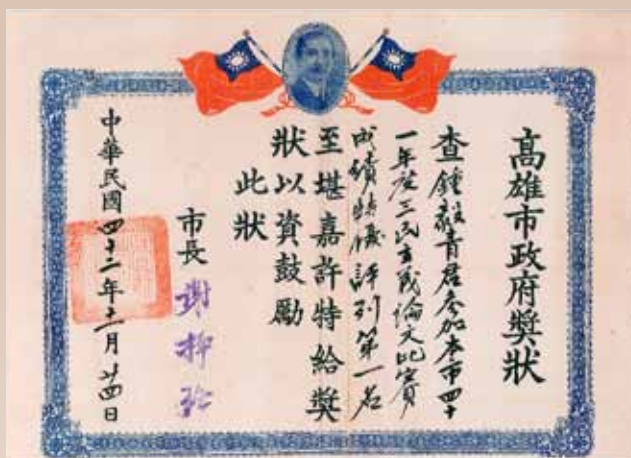 高雄市政府獎狀
查鍾毅青君參加本市四十
一年度三民主義論文比賽
成績特優評列第一名
至堪嘉許特給獎
狀以資鼓勵
此狀
市長 謝掙強
中華民國四十二年十一月廿四日